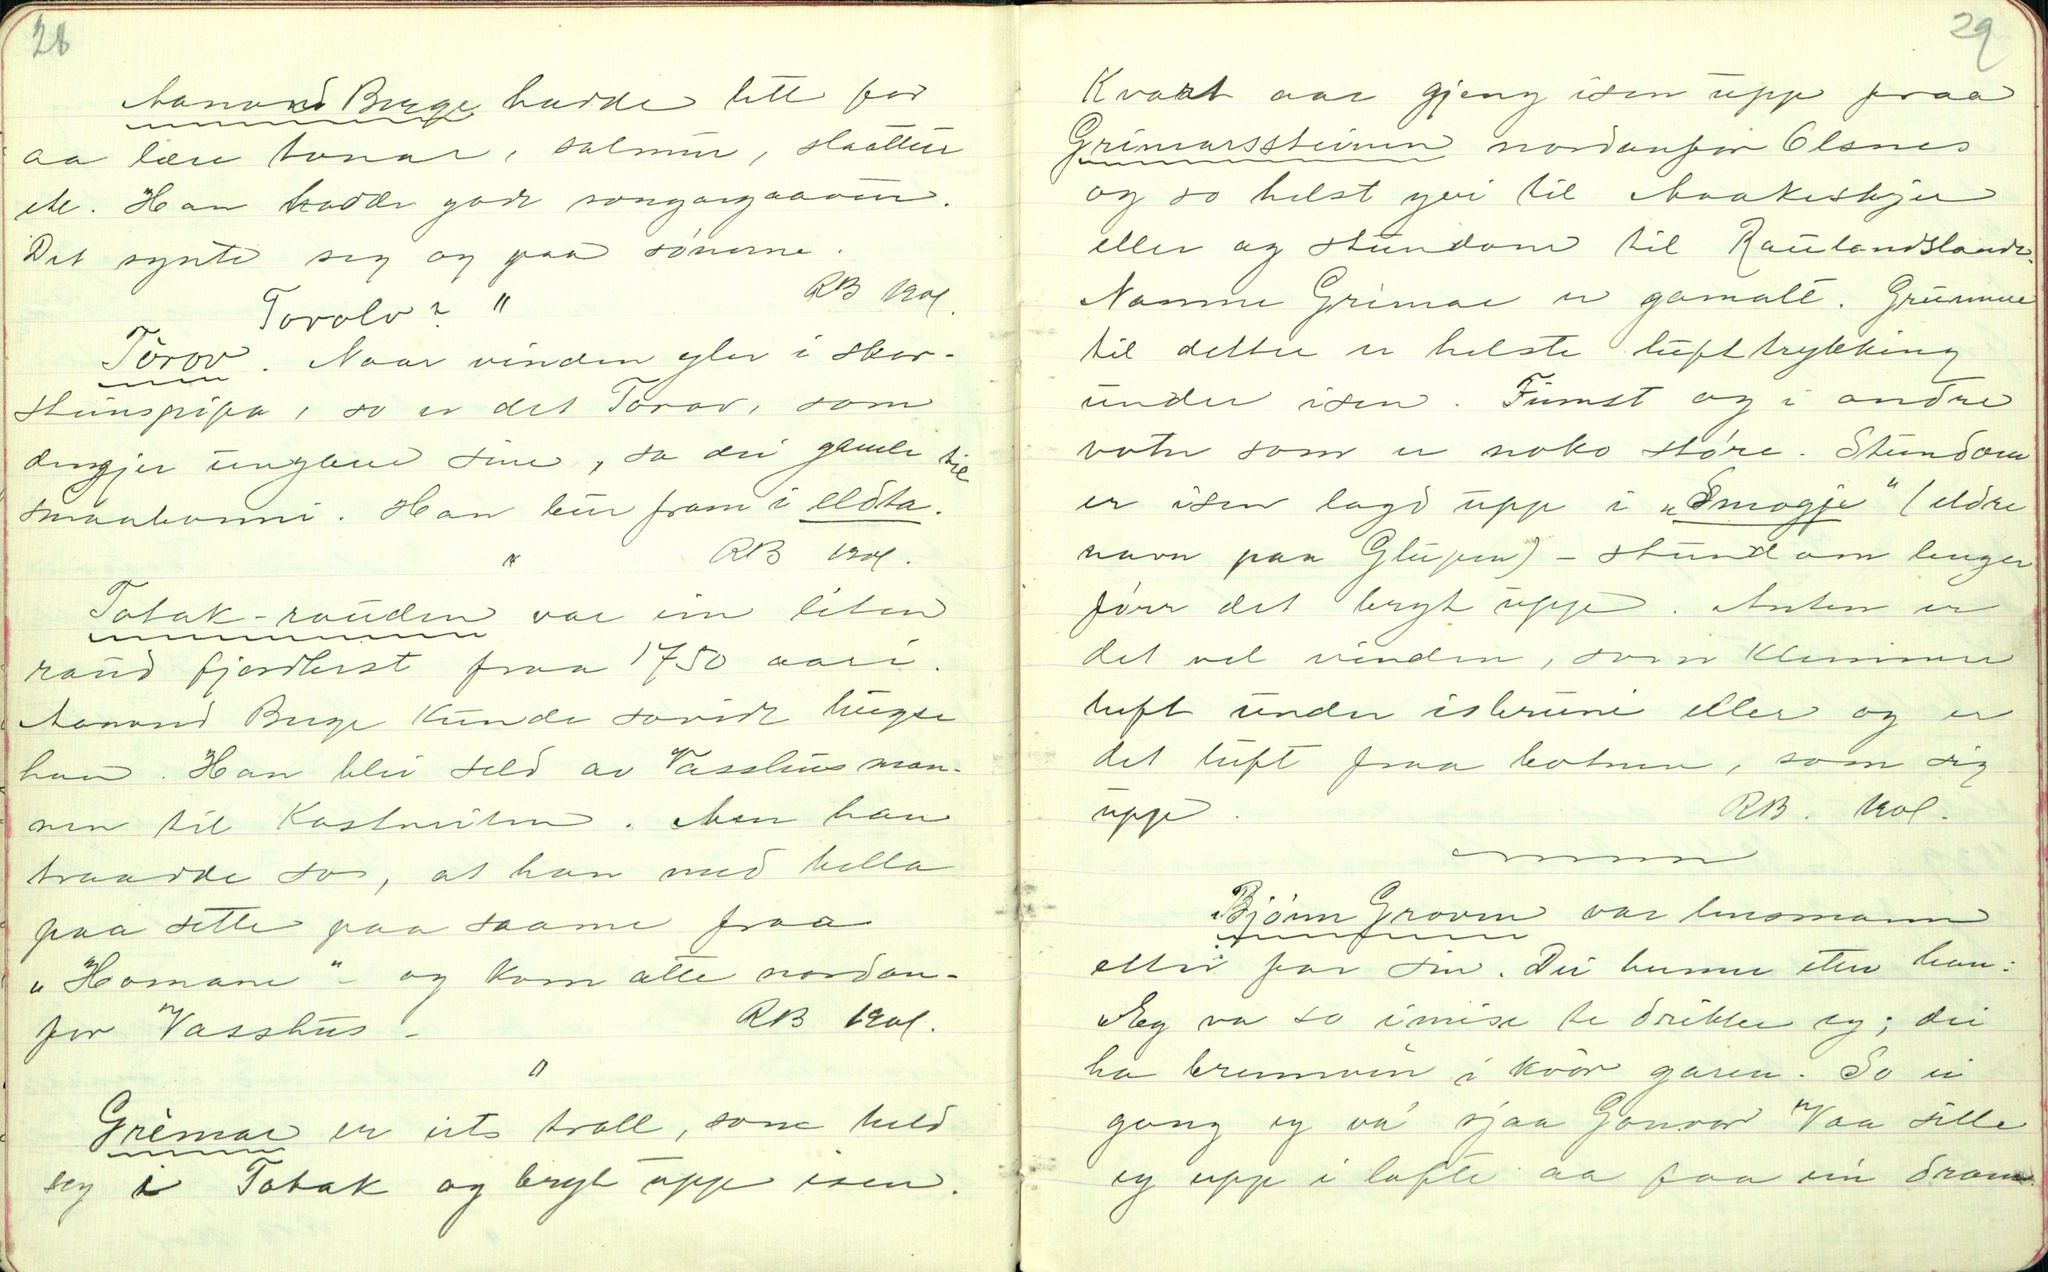 28
Aanond Berge hadde lett for
aa læra tonar, salmur, slaattur
etc. Han hadde gode songargaavur.
Det synte seg og paa sønerne.
RB 1901.
Torolv? "
Torov. Naar vinden yler i skor-
steinspipa, so er det Torov, som
dengjer ungane sine, sa dei gamle til
smaabonni. Han bur fram i eldta.
" RB 1901.
Totak-rauden var ein liten
raud fjordhest fraa 1750 aari.
Aanond Berge kunde sovidt hugse
han. Han blei seld av Vasshus man-
nen til Kostveiten. Men han
traadde so, at han med hella
paa sette paa saame fraa
"Homane" - og kom atte nordan-
for Vasshus - RB 1901.
"
Grimar er eits troll, som held
seg i Totak og bryt upp isen.
29
Kvart aar gjeng isen upp fraa
Grimarssteinen nordanfor Olsnes
og so helst yvi til Maakeskjer
eller og stundom til Raulandslandr.
Namne Grimar er gamalt. Grunnen
til dette er helste lufttrykking
under isen. Finnst og i andre
votn som er noko støre. Stundom
er isen lagd upp i "Smogje" (eldre
navn paa Glupen) - stundom lenger
förr det bryt upp. Anten er
det vel vinden, som klemmer
luft under isbruni eller og er
det luft fraa botnen, som sig
upp. RB. 1901.
Bjönn Groven var lensmann
ettir far sin. Dei hermer etter han:
Eg va so imise te drikke eg; dei
ha brennvin i kvor garen. So ei
gong eg va' sjaa Gonvor Vaa sille
eg upp i lofte aa faa ein dram